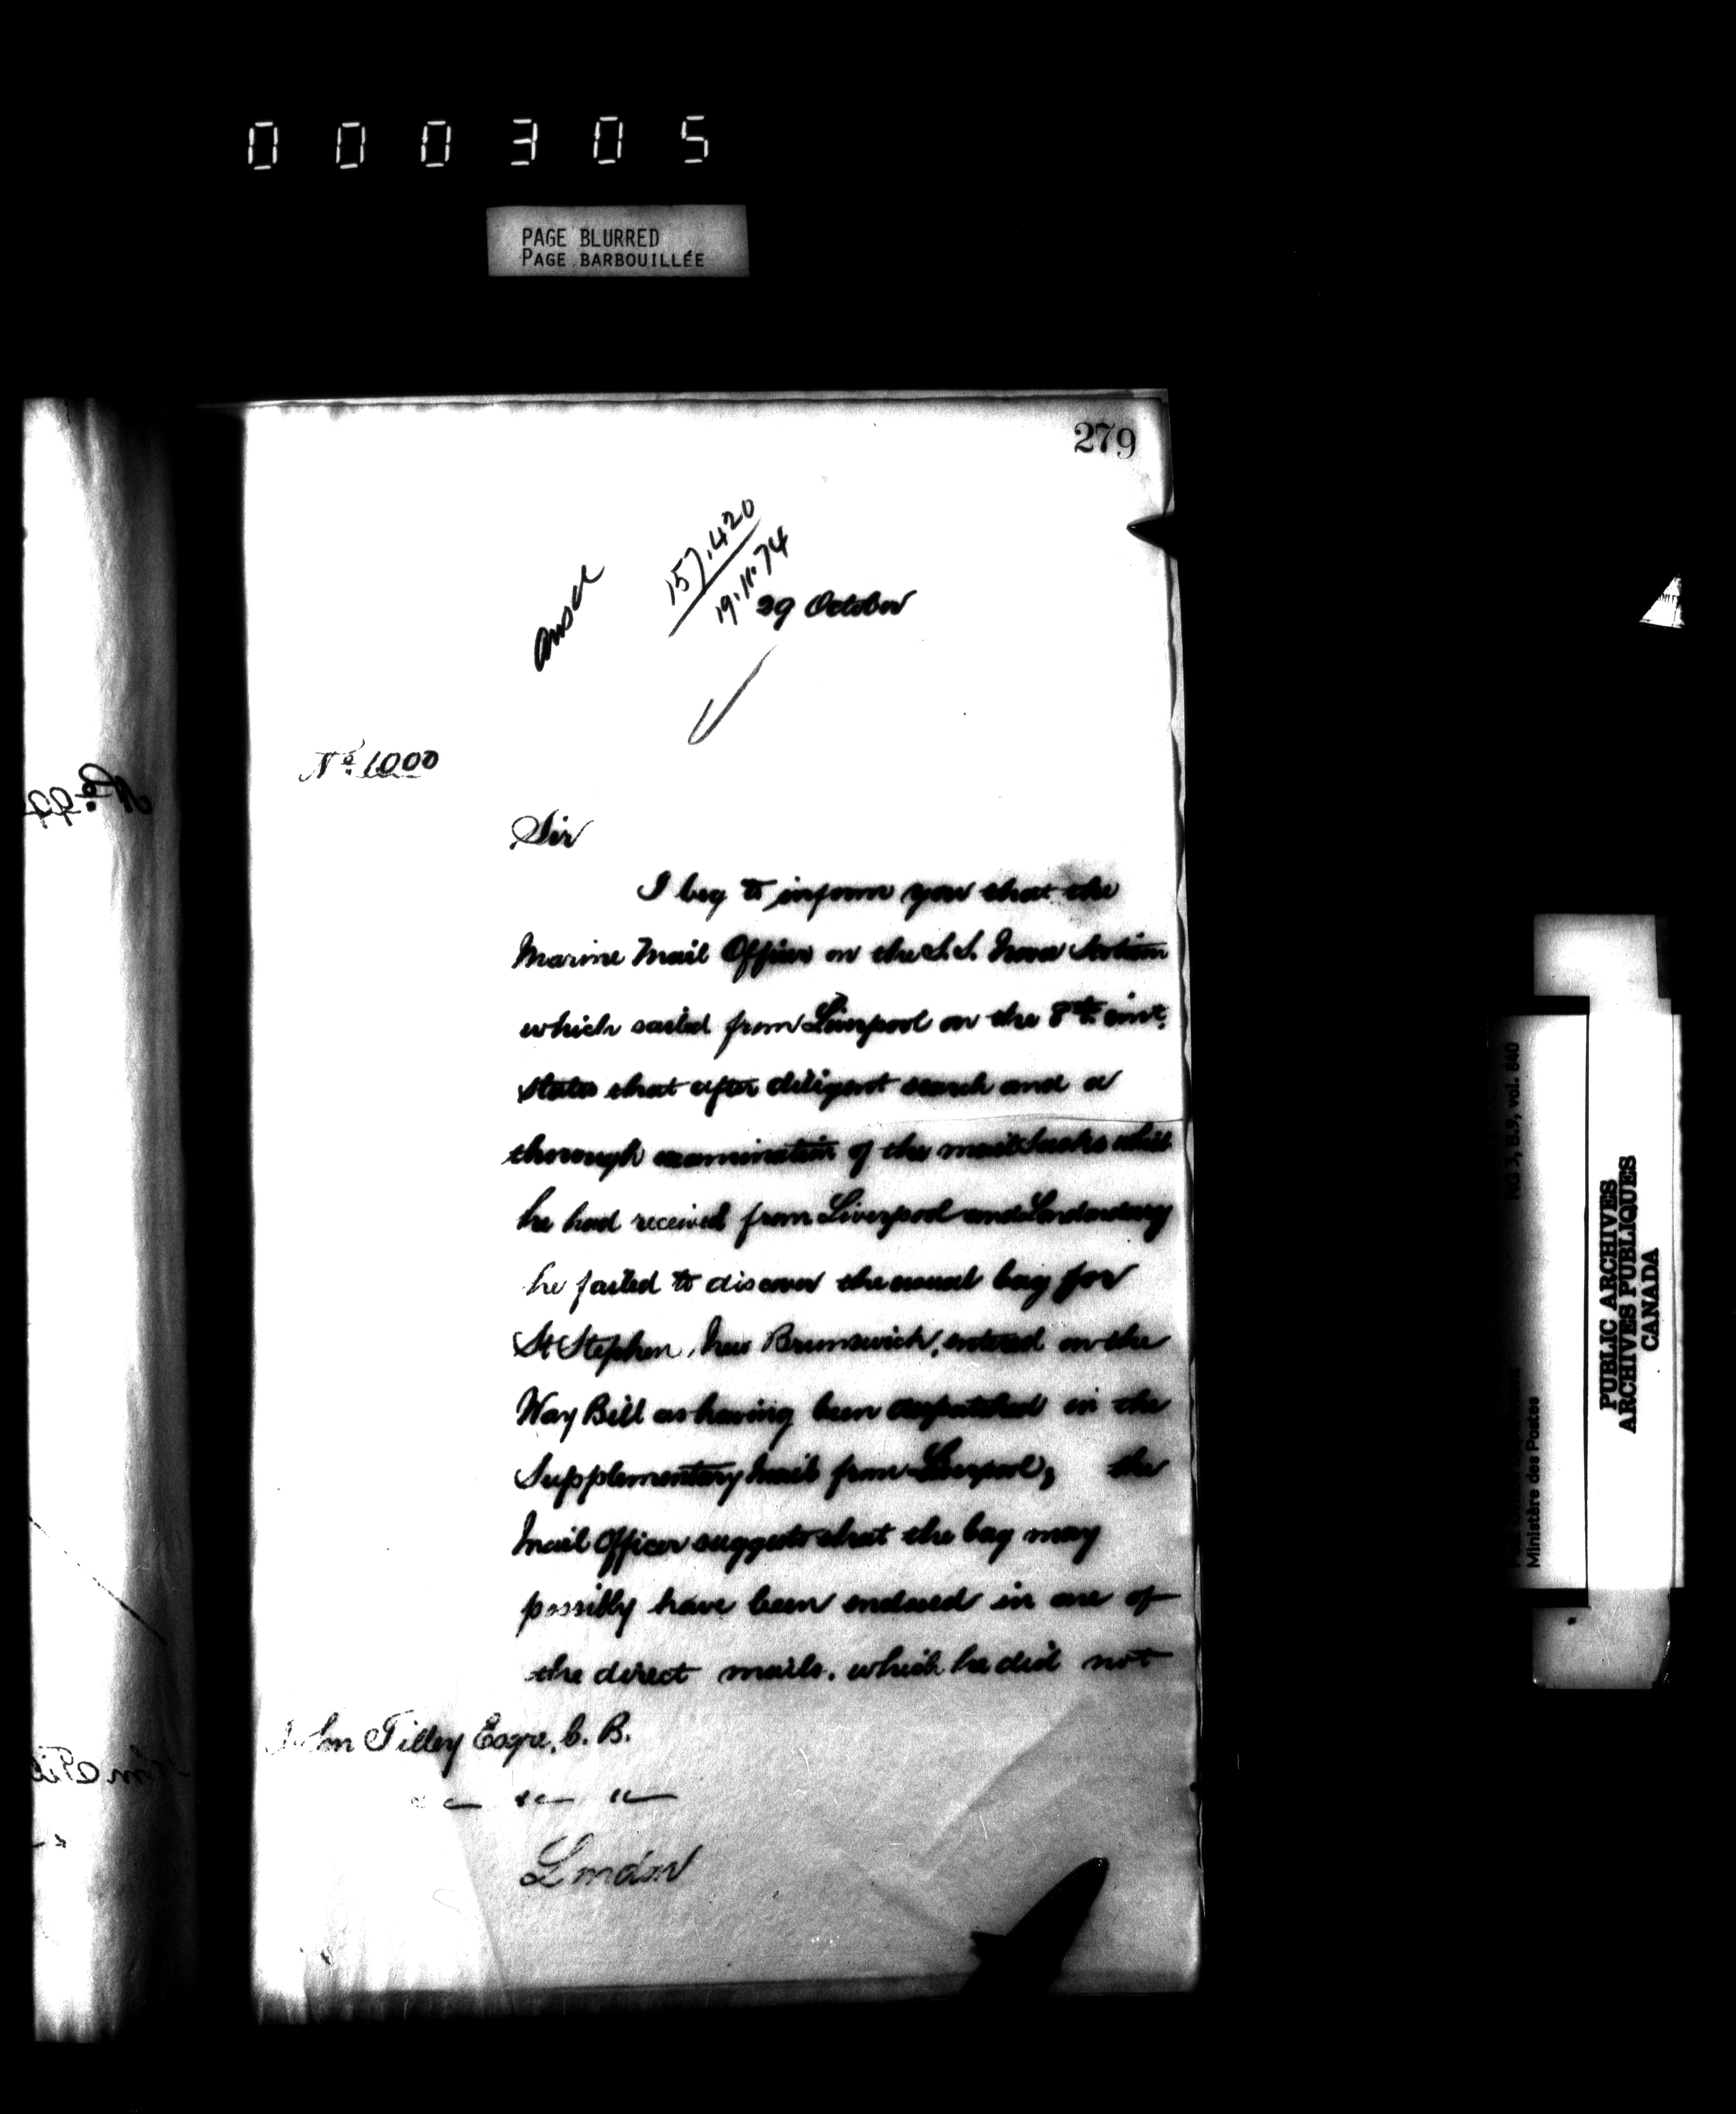 000305
PAGE BLURRED
PAGE BARBOUILLÉE
279
157,420
19.11.74
29 October
No. 1000
Sir
I beg to inform you that the
Marine Mail Officer on the S.S. Nova Scotian
which sailed from Liverpool on the 8th inst.
states that after diligent search and a
thorough examination of the mail sacks which
he had received from Liverpool and Londonderry
he failed to discover the usual bag for
St Stephen, New Brunswick, entered on the
Way Bill as having been despatched in the
Supplementary Mail from Liverpool, the
Mail Officer suggests that the bag may
possibly have been enclosed in one of
the direct mails, which he did not
John Tilley Esqre, C. B.
&c &c &c
London
RG 3, B.9, vol. 840
Ministère des Postes
PUBLIC ARCHIVES
ARCHIVES PUBLIQUES
CANADA